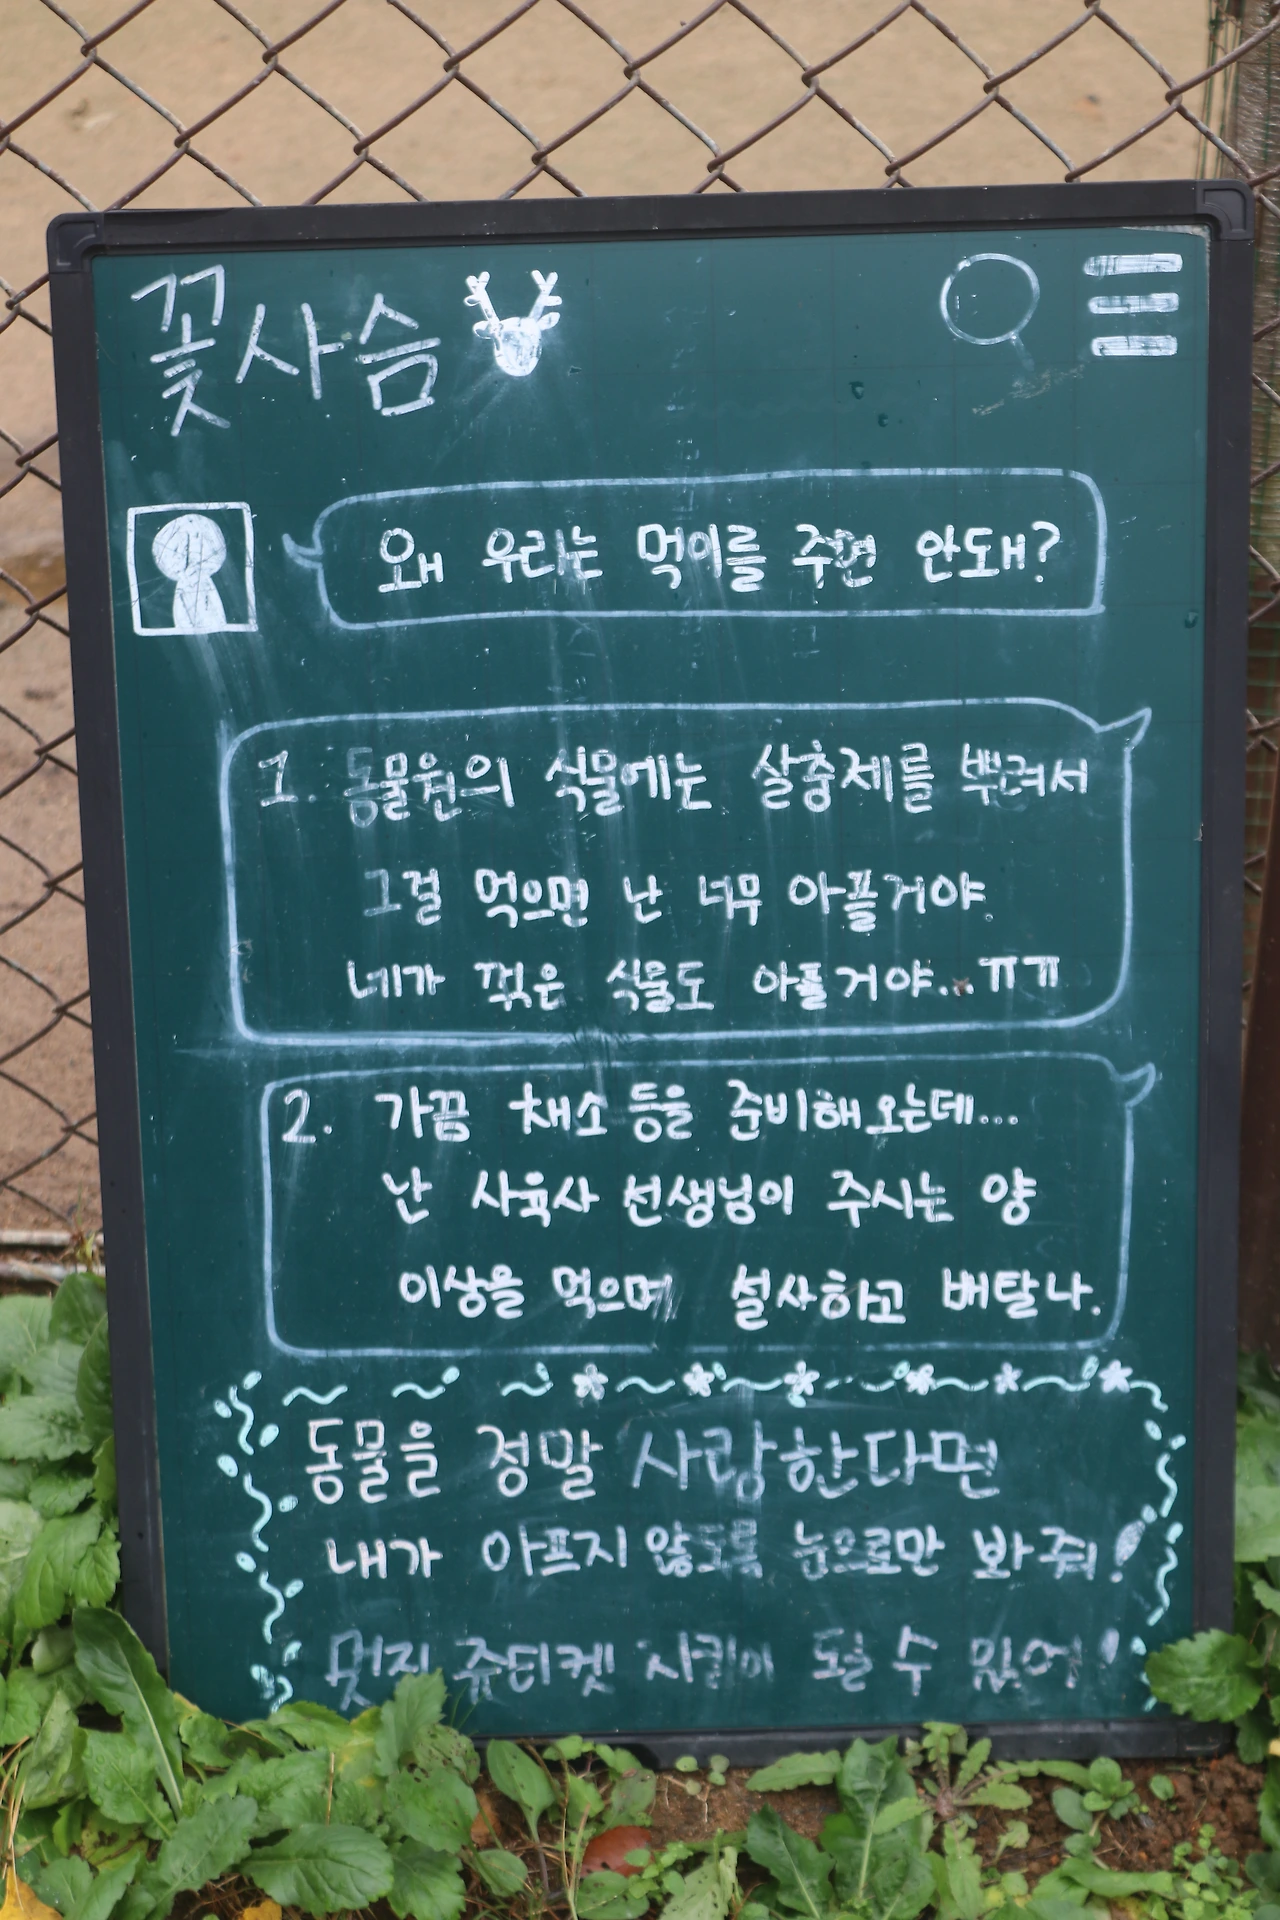 꽃사슴
왜 우리는 먹이를 주면 안돼?
1. 동물원의 식물에는 살충제를 뿌려서
그걸 먹으면 난 너무 아플거야.
네가 꺾은 식물도 아플거야...ㅠㅠ
2. 가끔 채소 등을 준비해오는데...
난 사육사 선생님이 주시는 양
이상을 먹으며 설사하고 배탈나.
동물을 정말 사랑한다면
내가 아프지 않도록 눈으로만 봐줘!
멋진 쥬티켓 지킴이 될 수 있어!